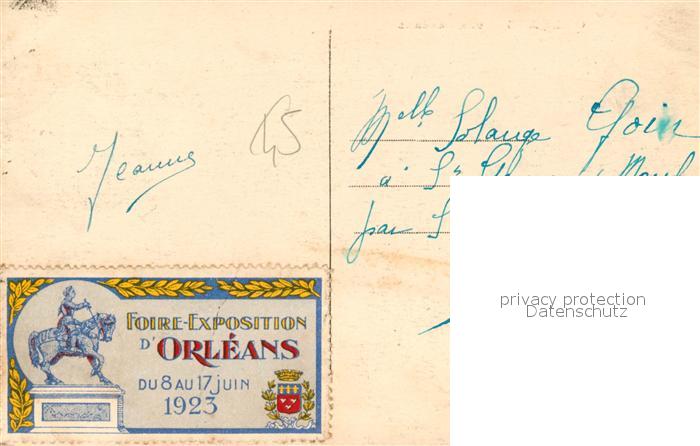 Melle Solange
à St
par S
Jeanne
45
FOIRE-EXPOSITION
D'ORLÉANS
DU 8 AU 17 JUIN
1923
privacy protection
Datenschutz